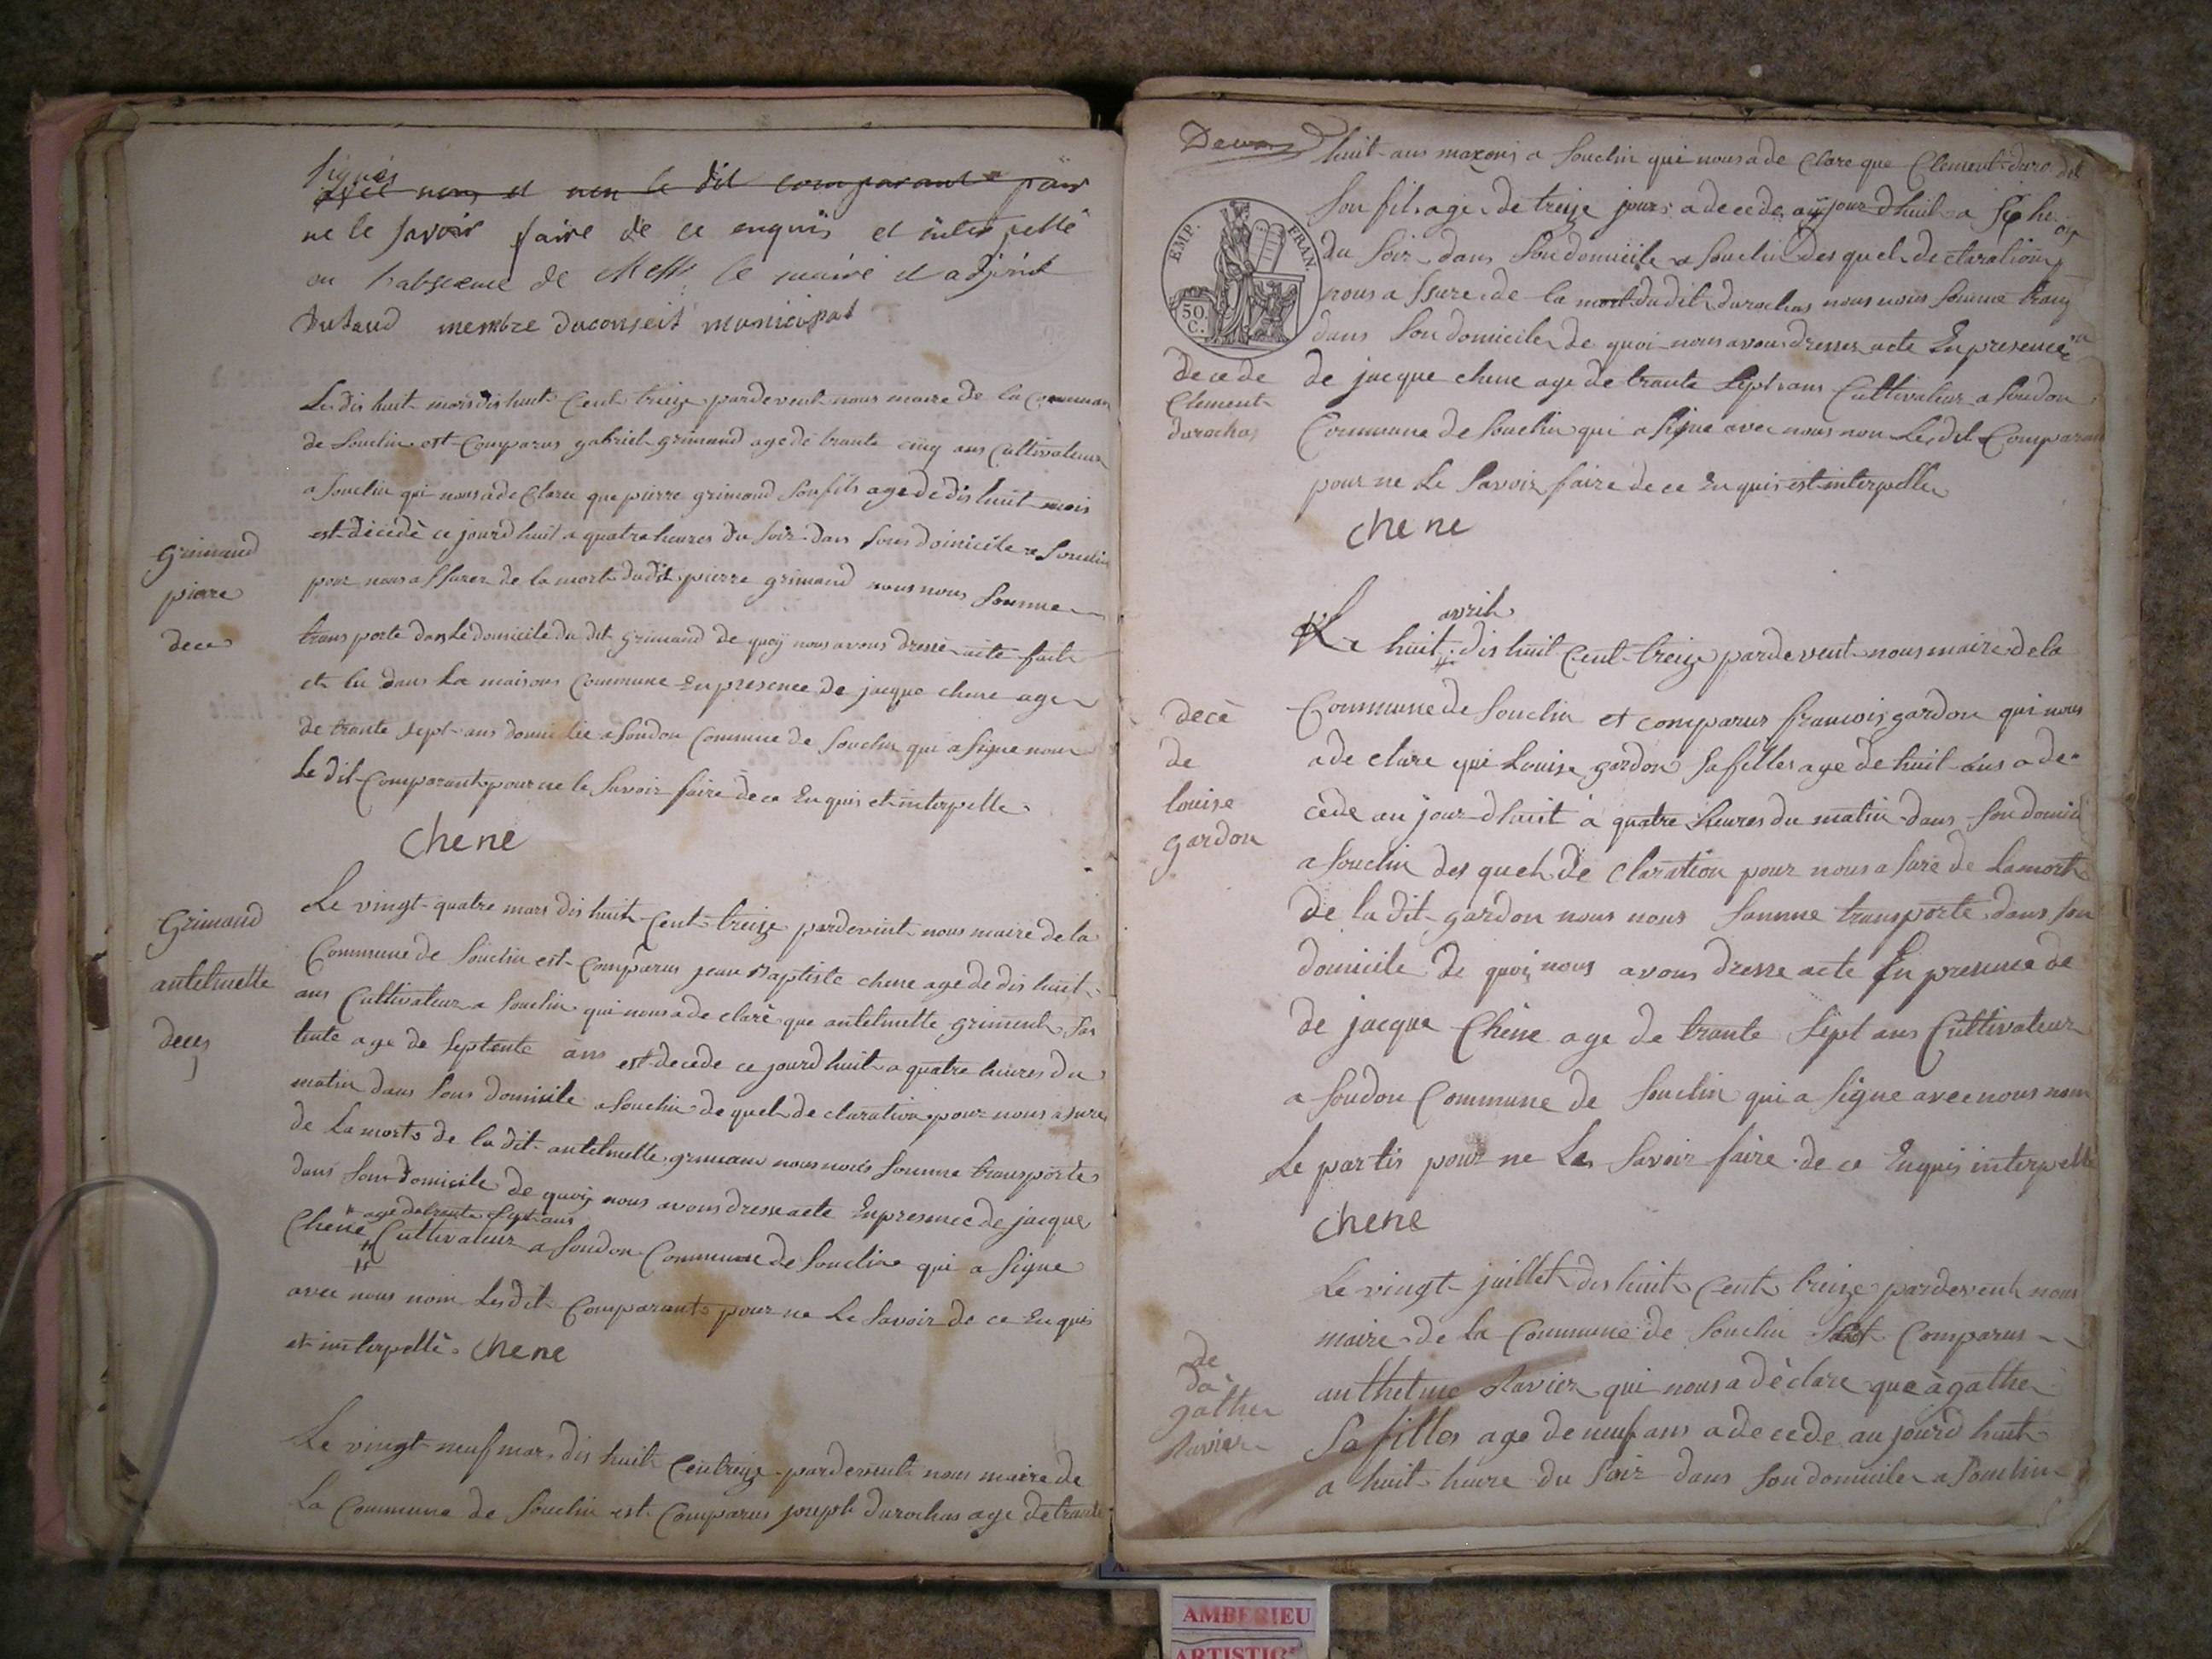 signés
avec nous et non le dit comparant pour
ne le savoir faire de ce enquis et interpellé
en l'absence de Mess. le maire et adjoint
Dutaud membre du conseil municipal
Le dis huit mars dis huit Cent treize pardevent nous maire de la Commune
de Souclin est Comparus gabriel grimaud age de trante cinq ans Cultivateur
a Souclin qui nous a de Claree que pierre grimaud son fils age de dis huit mois
est décedè ce jourd huit a quatre heures du soir dans sons doinicile a Souclin
pour nous assurer de la mort du dit pierre grimaud nous nous somme
transporte dans le domicile du dit grimaud de quoy nous avons dressé acte fait
et lu dans la maisons Commune En presence de jacque chene age
de trante sept ans domicilie a Soudon Commune de Souclin qui a signe non
Le dit Comparant pour ne le savoir faire de ce Enquis et interpelle
Chene
Grimaud
pierre
dece
Le vingt quatre mars dis huit Cent treize pardevent nous maire de la
Commune de Souclin est Comparus jean Baptiste chene age de dis huit
ans Cultivateur a Souclin qui nous a de clarè que antelmette griment sa
tente age de septente ans est decede ce jourd huit a quatre heures du
matin dans sons domicile a Souclin de quel de claration pour nous asure
de La morts de la dit antelmette grimaud nous nous somme transporte
dans son domicile de quoy nous avons dresse acte Enpresence de jacque
age de trante sept ans
Chene Cultivateur a Soudon Commune de Souclin qui a signe
avec nous nom Les dit Comparants pour ne Le savoir de ce Enquis
et interpellè Chene
Grimaud
antelmette
deces
Le vingt neuf mars dis huit Centreize pardevent nous maire de
La Commune de Souclin est Comparus joseph durochas age de trante
Deux
huit ans maxons a Souclin qui nous a de Clare que Clement duro dit
son fils age de treize jours a decede aujourdhuit a
du soir dans son domicile a Souclin des quel de claration
nous assure de la mort du dit durochas nous nous somme
dans son domicile de quoi nous avons dresser acte En presence
de jacque chene age de trante sept ans Cultivateur a Soudon
Commune de Souclin qui a signe avec nous non Le dit Comparan
pour ne Le savoir faire de ce Enquis est interpelle
Chene
EMP. FRAN.
50.
C.
decede
Clement
durochas
avril
Le huit dis huit Cent treize pardevent nous maire de la
Commune de Souclin et comparus francois gardon qui nous
a de clare qui Louise gardon sa filles age de huit ans a de
cède au jourdhuit à quatre heures du matin dans son domici
a Souclin des quel de claration pour nous a sure de La mort
de la dit gardon nous nous somme transporte dans son
domicile de quoi nous avons dresse acte En presence de
de jacque Chène age de trante sept ans Cultivateur
a Soudon Commune de Souclin qui a signe avec nous nom
Le partis pour ne Les savoir faire de ce Enquis interpelle
Chene
decè
de
louise
gardon
Le vingt juillet dis huit Cent treize pardevent nous
maire de la Commune de Souclin Comparus
anthelme Ravier qui nous a dèclare que àgathe
Sa filles age de neuf ans a decede au jourd huit
a huit heure du soir dans son domicile a Souclin
de
da
gathe
Ravier
AMBERIEU
ARTISTIQ